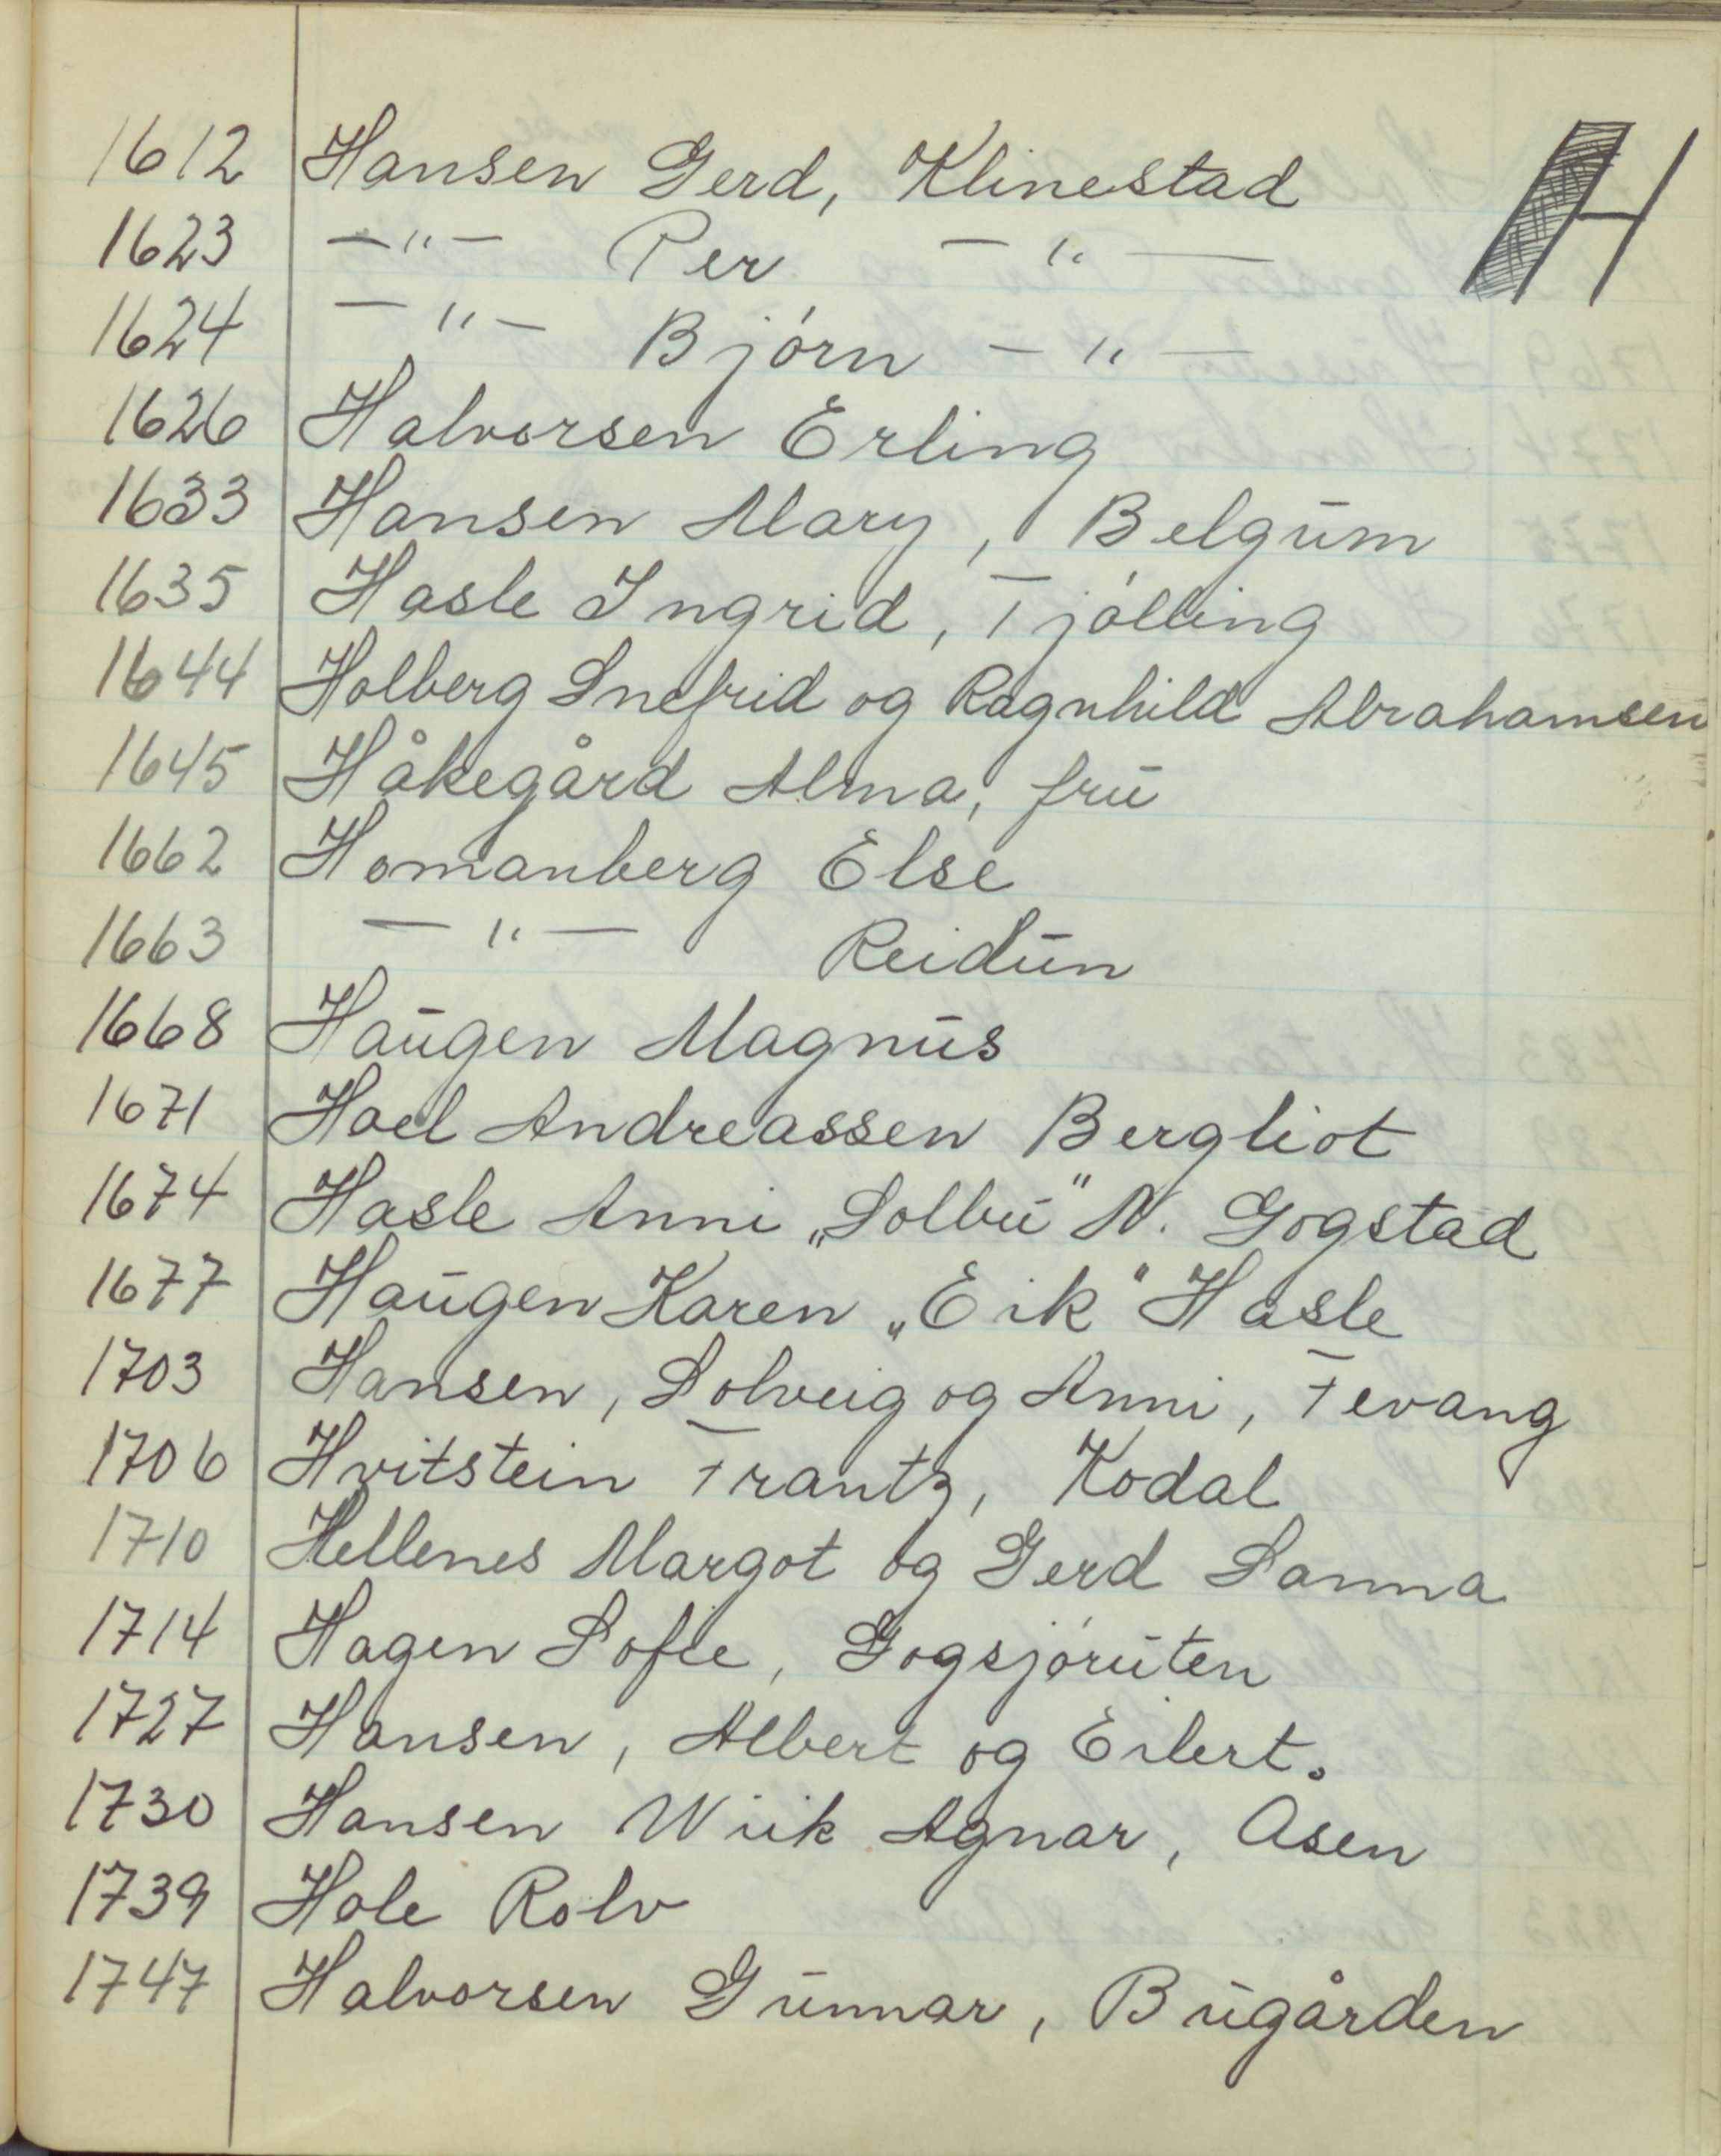 H
1612 Hansen Gerd, Klinestad
1623 —"— Per —"—
1624 —"— Bjørn —"—
1626 Halvorsen Erling
1633 Hansen Mary, Belgum
1635 Hasle Ingrid, Tjølling
1644 Holberg Snefrid og Ragnhild Abrahamsen
1645 Håkegård Alma, fru
1662 Homanberg Else
1663 —"— Reidun
1668 Haugen Magnus
1671 Hoel Andreassen Bergliot
1674 Hasle Anni „Solbu" N. Gogstad
1677 Haugen Karen „Eik" Hasle
1703 Hansen, Solveig og Anni, Fevang
1706 Hvitstein Frantz, Kodal
1710 Hellenes Margot og Gerd Sanna
1714 Hagen Sofie, Gogsjøruten
1727 Hansen, Albert og Eilert.
1730 Hansen Wiik Agnar, Åsen
1739 Hole Rolv
1747 Halvorsen Gunnar, Bugården